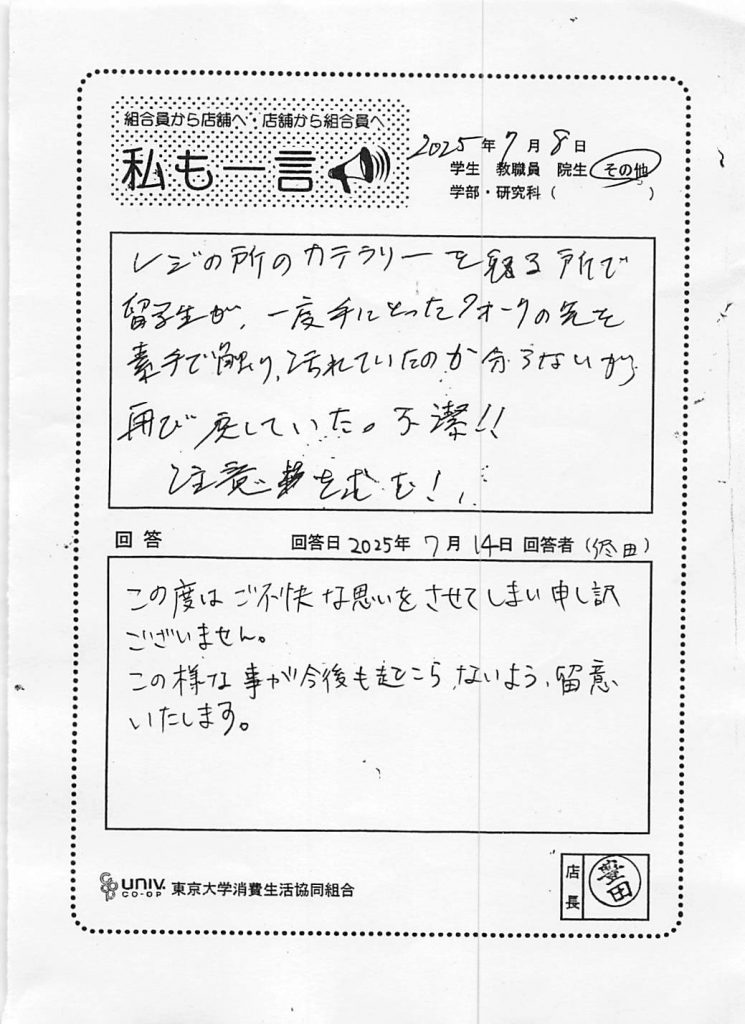 組合員から店舗へ・店舗から組合員へ
私も一言
2025年7月8日
学生 教職員 院生 その他
学部・研究科( )
レジの所のカテラリーを取る所で
留学生が、一度手にとったフォークの先を
素手で触り、汚れていたのか分らないが
再び戻していた。不潔!!
注意を求む!
回答 回答日 2025年7月14日 回答者(田)
この度はご不快な思いをさせてしまい申し訳
ございません。
この様な事が今後も起こらないよう、留意
いたします。
UNIV. CO-OP 東京大学消費生活協同組合
店長 豊田